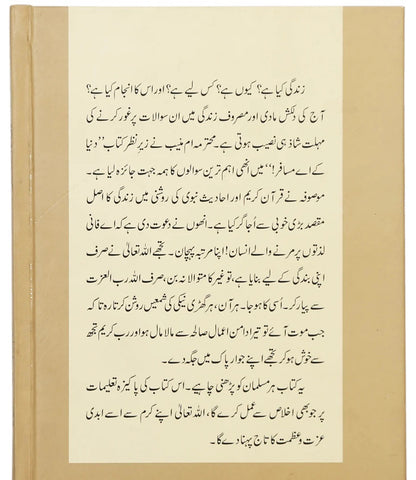 زندگی کیا ہے؟ کیوں ہے؟ کس لیے ہے؟ اور اس کا انجام کیا ہے؟
آج کی دلکش مادی اور مصروف زندگی میں ان سوالات پر غور کرنے کی
مہلت شاذ ہی نصیب ہوتی ہے۔ محترمہ ام منیب نے زیرِ نظر کتاب ”دنیا
کے اے مسافر!“ میں انھی اہم ترین سوالوں کا ہمہ جہت جائزہ لیا ہے۔
موصوفہ نے قرآن کریم اور احادیث نبوی کی روشنی میں زندگی کا اصل
مقصد بڑی خوبی سے اُجاگر کیا ہے۔ انھوں نے دعوت دی ہے کہ اے فانی
لذتوں پر مرنے والے انسان! اپنا مرتبہ پہچان۔ تجھے اللہ تعالیٰ نے صرف
اپنی بندگی کے لیے بنایا ہے، تو غیر کا متوالا نہ بن، صرف اللہ رب العزت
سے پیار کر۔ اُسی کا ہو جا۔ ہر آن، ہر گھڑی نیکی کی شمعیں روشن کرتا رہ تاکہ
جب موت آئے تو تیرا دامن اعمال صالحہ سے مالا مال ہو اور رب کریم تجھ
سے خوش ہو کر تجھے اپنے جوار پاک میں جگہ دے۔
یہ کتاب ہر مسلمان کو پڑھنی چاہیے۔ اس کتاب کی پاکیزہ تعلیمات
پر جو بھی اخلاص سے عمل کرے گا، اللہ تعالیٰ اپنے کرم سے اسے ابدی
عزت و عظمت کا تاج پہنا دے گا۔